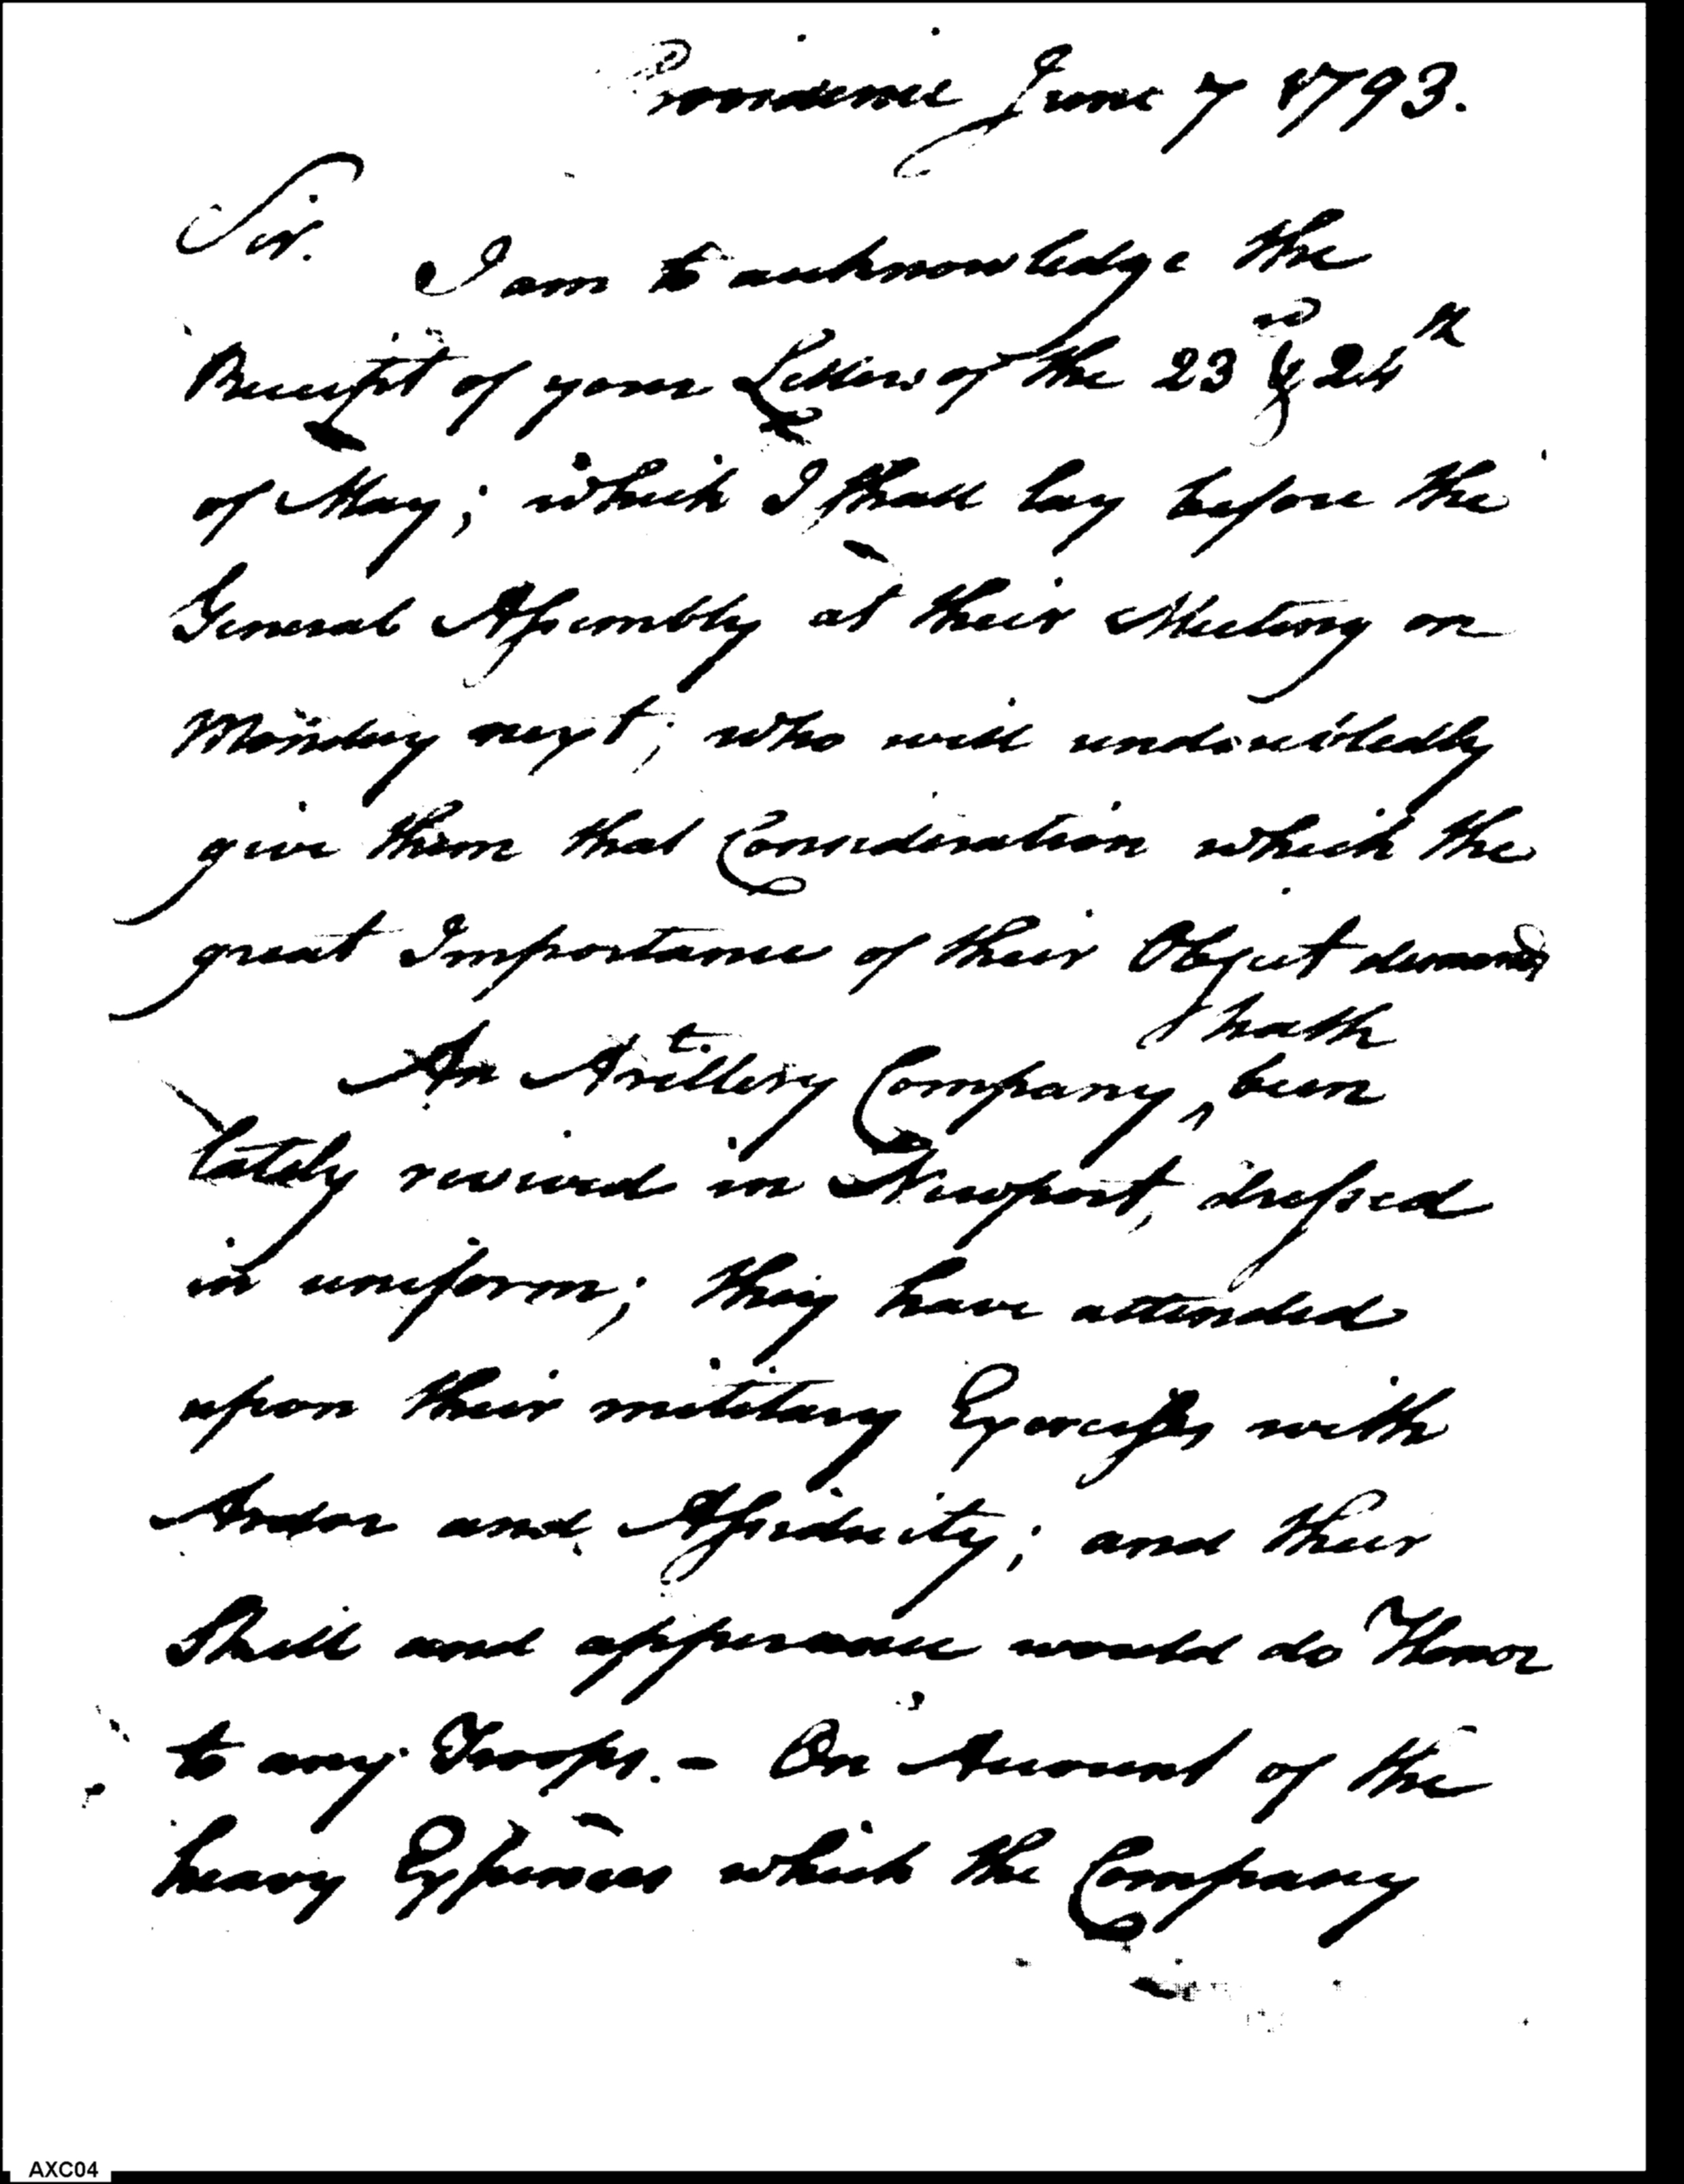 Providence June 7 1793.
Sir.
I am to acknowledge the
Receipt of your Letters of the 23d & 24th
of May; which I shall lay before the
General Assembly at their Meeting on
Monday next; who will undoubtedly
give them that Consideration which the
great Importance of their Object demands
hath
An Artillery Company, been
lately revived in Newport, dressed
in uniform; they have attended
upon their military Exercises with
Ardor and Assiduity; and their
Skill and apperance would do Honor
to any Troops. - On Account of the
heavy Expences which the Company
AXC04